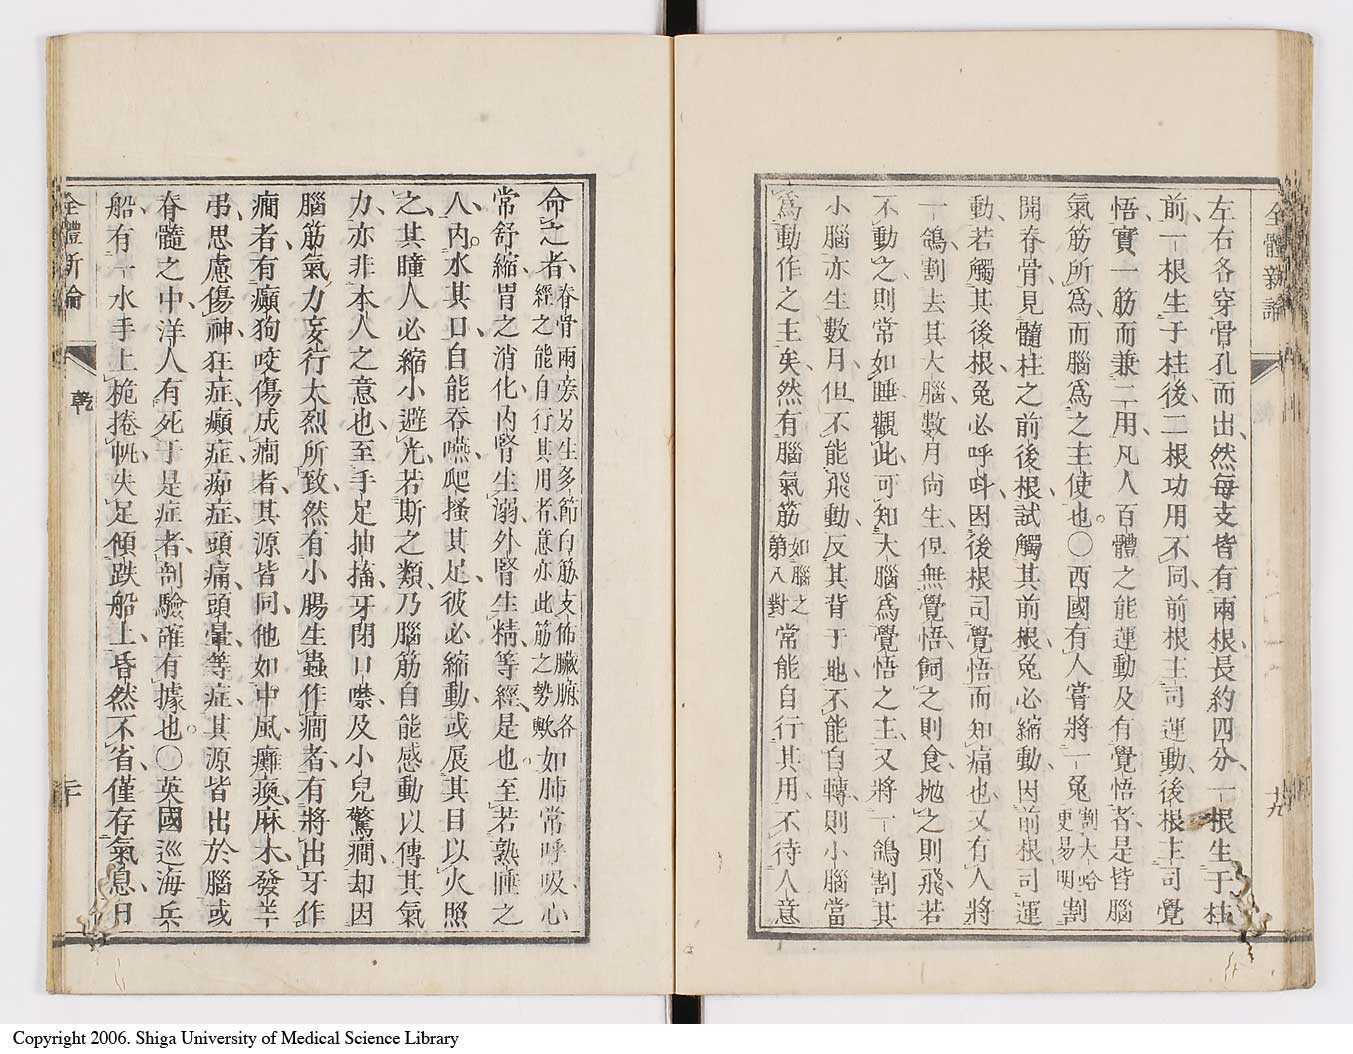 全體新論
十九
左右各穿骨孔而出然每支皆有兩根長約四分一根生于柱
前一根生于柱後二根功用不同前根主司運動後根主司覺
悟實一筋而兼二用凡人百體之能運動及有覺悟者是皆腦
氣筋所爲而腦爲之主使也。〇西國有人嘗將一兔割大哈更易明割
開脊骨見髓柱之前後根試觸其前根兔必縮動因前根司運
動若觸其後根兔必呼呌因後根司覺悟而知痛也又有人將
一鴿割去其大腦數月尙生但無覺悟飼之則食拋之則飛若
不動之則常如睡觀此可知大腦爲覺悟之主又將一鴿割其
小腦亦生數月但不能飛動反其背于地不能自轉則小腦當
爲動作之主矣然有腦氣筋如腦之第八對常能自行其用不待人意
命之者脊骨兩旁另生多節白筋支佈臟腑各經之能自行其用者意亦此筋之勢歟如肺常呼吸心
常舒縮胃之消化內腎生溺外腎生精等經是也。至若熟睡之
人內水其口自能吞嚥爬搔其足彼必縮動或展其目以火照
之其瞳人必縮小避光若斯之類乃腦筋自能感動以傳其氣
力亦非本人之意也至手足抽搐牙閉口噤及小兒驚癎却因
腦筋氣力妄行太烈所致然有小腸生蟲作癎者有將出牙作
癎者有癲狗咬傷成癎者其源皆同他如中風癱瘓麻木發羊
弔思慮傷神狂症癲症痴症頭痛頭暈等症其源皆出於腦或
脊髓之中洋人有死于是症者剖驗確有據也。〇英國巡海兵
船有一水手上桅捲帆失足傾跌船上昏然不省僅存氣息日
全體新論
乾
二十
Copyright 2006. Shiga University of Medical Science Library